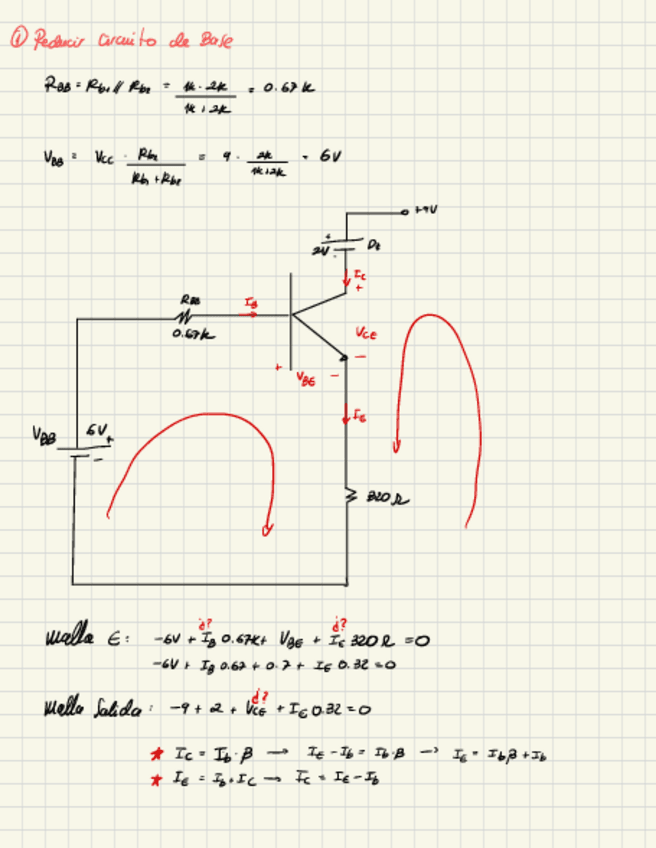 ① Reducir Circuito de Base
RBB = Rb1 // Rb2 = 1k · 2k / 1k + 2k = 0.67 k
VBB = Vcc · Rb2 / Rb1 + Rb2 = 9 · 2k / 1k+2k = 6V
+9V
+
2V
-
Dz
IC
+
RBB
IB
0.67k
VCE
-
+ VBE -
IE
VBB 6V +
-
320 Ω
¿? ¿?
Malla E: -6V + IB 0.67k + VBE + IE 320 Ω = 0
-6V + IB 0.67 + 0.7 + IE 0.32 = 0
¿?
Malla Salida: -9 + 2 + VCE + IE 0.32 = 0
★ IC = Ib · β → IE - Ib = Ib · β → IE = Ib β + Ib
★ IE = Ib + IC → IC = IE - Ib